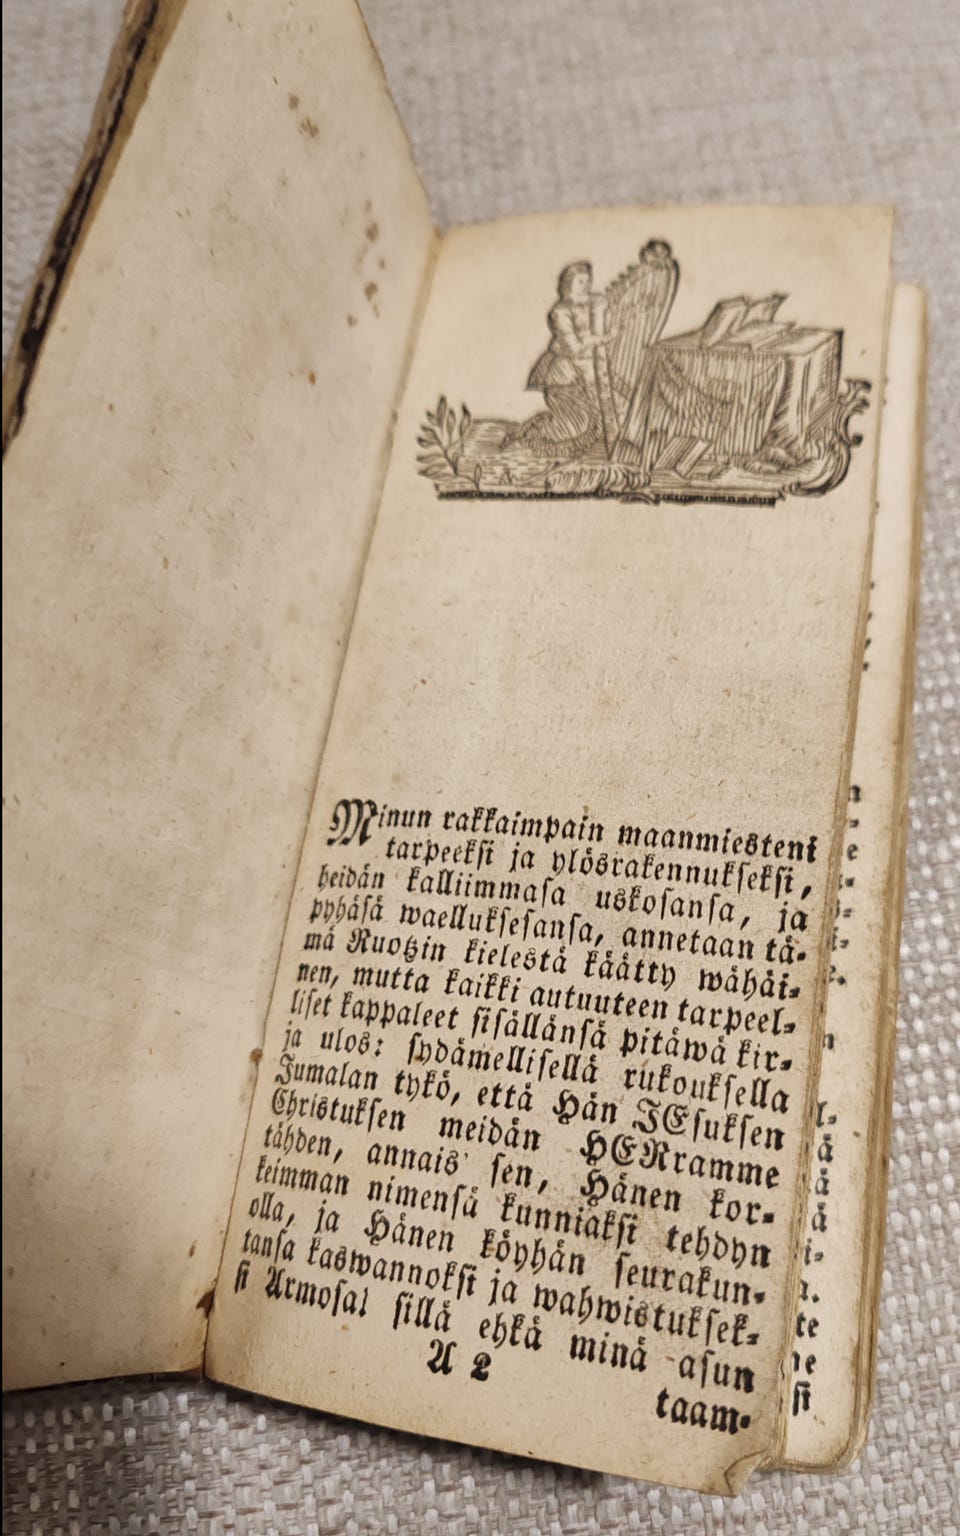 Minun rakkaimpain maanmiesteni
tarpeeksi ja ylösrakennukseksi,
heidän kalliimmasa uskosansa, ja
pyhäsä waelluksesansa, annetaan tä-
mä Ruotzin kielestä käätty wähäi-
nen, mutta kaikki autuuteen tarpeel-
liset kappaleet sisällänsä pitäwä kir-
ja ulos: sydämellisellä rukouksella
Jumalan tykö, että Hän JEsuksen
Christuksen meidän HERramme
tähden, annais' sen, Hänen kor-
keimman nimensä kunniaksi tehdyn
olla, ja Hänen köyhän seurakun-
tansa kaswannoksi ja wahwistuksek-
si Armosa! sillä ehkä minä asun
A 2
taam-